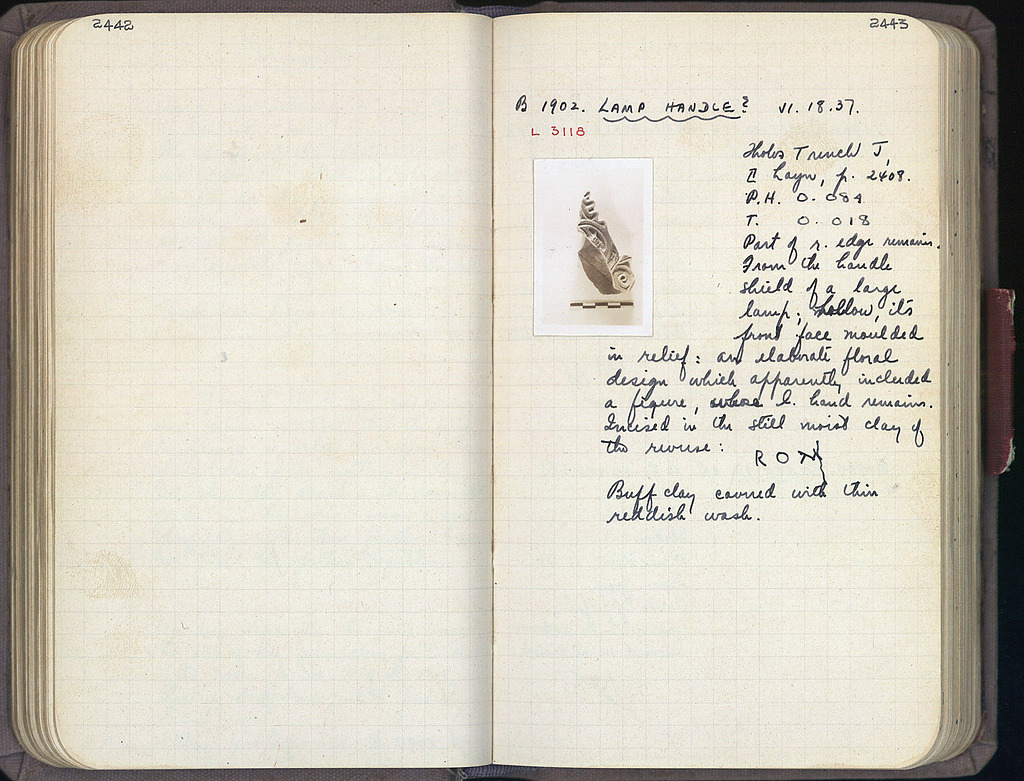 2442
2443
B 1902. LAMP HANDLE? VI. 18. 37.
L 3118
Tholos Trench J,
II layer, p. 2408.
P.H. 0.084
T. 0.018
Part of r. edge remains.
From the handle
shield of a large
lamp; hollow, its
front face moulded
in relief: an elaborate floral
design which apparently included
a figure, whose l. hand remains.
Incised in the still moist clay of
the reverse:
RO
Buff clay covered with thin
reddish wash.